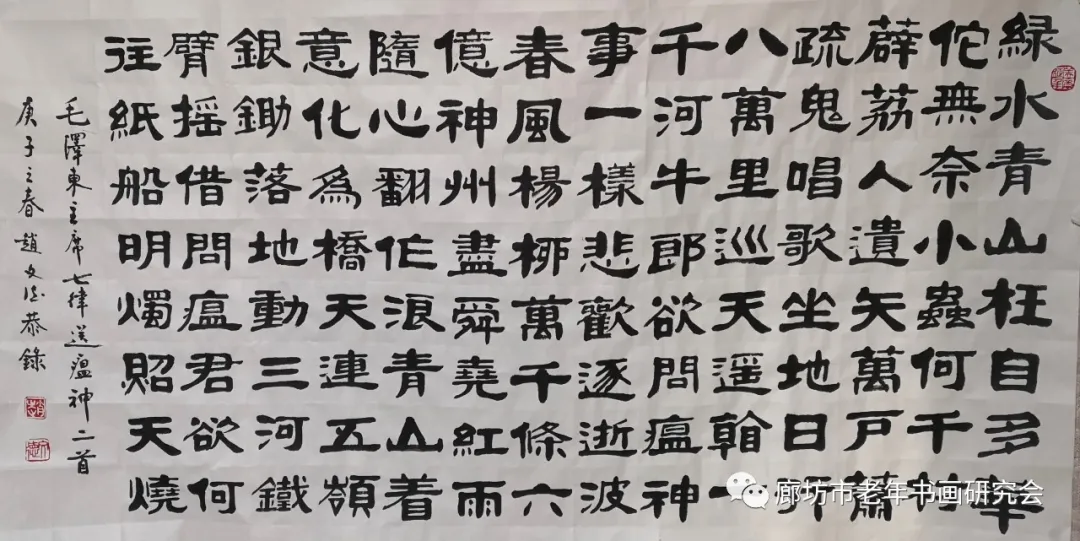 綠水青山枉自多華
佗無奈小蟲何千村
薜荔人遺矢萬戶蕭
疏鬼唱歌坐地日行
八萬里巡天遥翰一
千河牛郎欲問瘟神
事一樣悲歡逐逝波
春風楊柳萬千條六
億神州盡舜堯紅雨
隨心翻作浪青山着
意化為橋天連五嶺
銀鋤落地動三河鐵
臂摇借問瘟君欲何
往紙船明燭照天燒
毛澤東主席七律送瘟神二首
庚子之春 趙文恭錄
廊坊市老年书画研究会